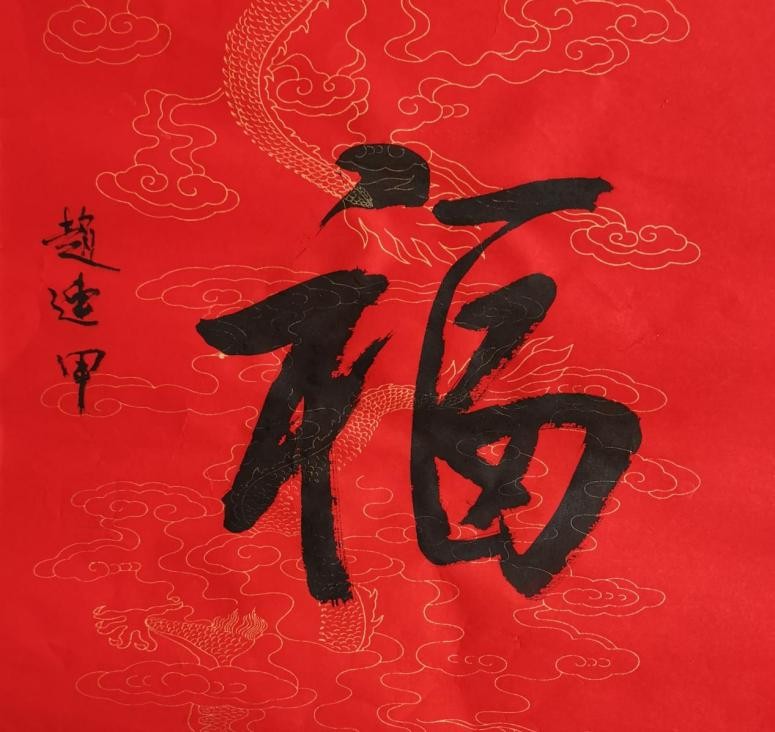 福
趙建甲